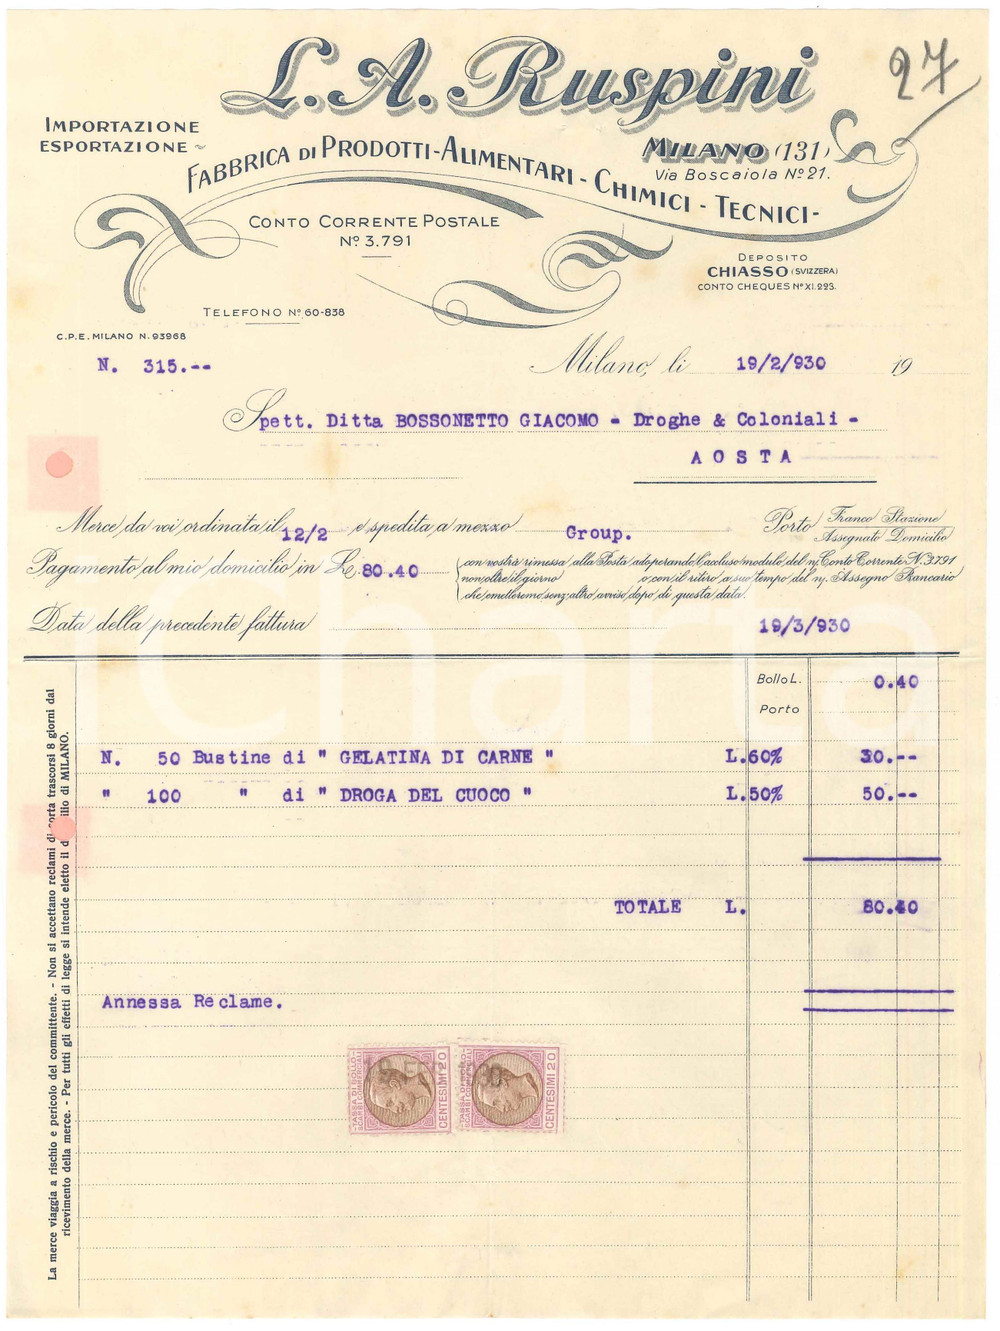 L. A. Ruspini
27
IMPORTAZIONE
ESPORTAZIONE
FABBRICA DI PRODOTTI - ALIMENTARI - CHIMICI - TECNICI -
MILANO (131)
Via Boscaiola Nº 21.
CONTO CORRENTE POSTALE
Nº 3.791
DEPOSITO
CHIASSO (SVIZZERA)
CONTO CHEQUES Nº XI.223.
TELEFONO Nº 60-838
C.P.E. MILANO N. 93968
N. 315.--
Milano, li 19/2/930 19
Spett. Ditta BOSSONETTO GIACOMO - Droghe & Coloniali -
AOSTA
Merce da voi ordinata il 12/2 e spedita a mezzo Group. Porto Franco Stazione
Assegnato Domicilio
Pagamento al mio domicilio in L. 80.40
con vostra rimessa alla Posta adoperando l'accluso modulo del n/ Conto Corrente N. 3.791
non oltre il giorno o con il ritiro a suo tempo del n/ Assegno Bancario
che emetteremo senz'altro avviso dopo di questa data.
Data della precedente fattura 19/3/930
Bollo L. 0.40
Porto
N. 50 Bustine di " GELATINA DI CARNE " L. 60% 30.--
" 100 " di " DROGA DEL CUOCO " L. 50% 50.--
TOTALE L. 80.40
Annessa Reclame.
TASSA DI BOLLO
SCAMBI COMMERCIALI
CENTESIMI 20
TASSA DI BOLLO
SCAMBI COMMERCIALI
CENTESIMI 20
La merce viaggia a rischio e pericolo del committente. - Non si accettano reclami di sorta trascorsi 8 giorni dal
ricevimento della merce. - Per tutti gli effetti di legge si intende eletto il d illo di MILANO.
iCharta